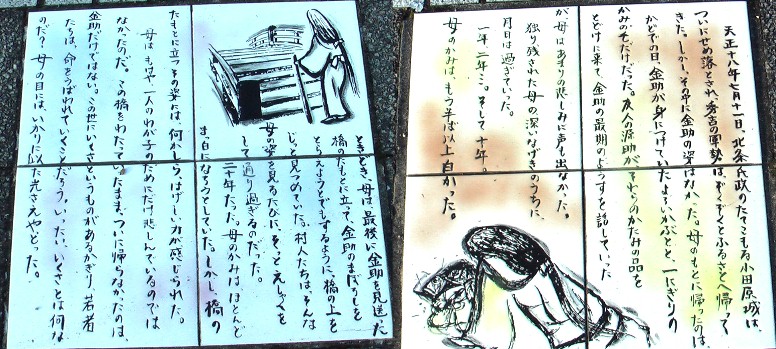 天正十八年七月十一日、北条氏政のたてこもる小田原城は、
ついにせめ落とされ、秀吉の軍勢は、ぞくぞくとふるさとへ帰って
きた。しかし、その中に金助の姿はなかった。母のもとに帰ったのは、
かどでの日、金助が身につけていたよろいかぶとと、一にぎりの
かみの毛だけだった。友人の源助が、それらのかたみの品を
とどけに来て、金助の最期のようすを話していった
が、母はあまりの悲しみに声も出なかった。
独り残された母の深いなげきのうちに、
月日は過ぎていった。
一年、二年、三…。そして十年。
母のかみは、もう半ば以上白かった。
ときどき、母は、最後に金助を見送った
橋のたもとに立って、金助のまぼろしを
とらえようとでもするように、橋の上を
じっと見つめていた。村人たちは、そんな
母の姿を見るたびに、そっとえしゃくを
して通り過ぎるのだった。
二十年たった。母のかみはほとんど
まっ白になろうとしていた。しかし、橋の
たもとに立つその姿には、何かしら、はげしい力が感じられた。
母はもはや、一人のわが子のためにだけ悲しんでいるのでは
なかったのだ。この橋をわたっていったまま、ついに帰らなかったのは、
金助だけではない。この世にいくさというものがあるかぎり、若者
たちは、命をうばわれていくことだろう。いったい、いくさとは何な
のだ？母の目には、いかりに似た光さえやどった。